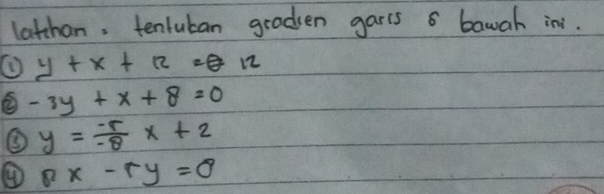 latihan : tentukan gradien garis d bawah ini.
① y + x + 12 = 12
② -3y + x + 8 = 0
③ y = -5/-8 x + 2
④ 8x - 5y = 0